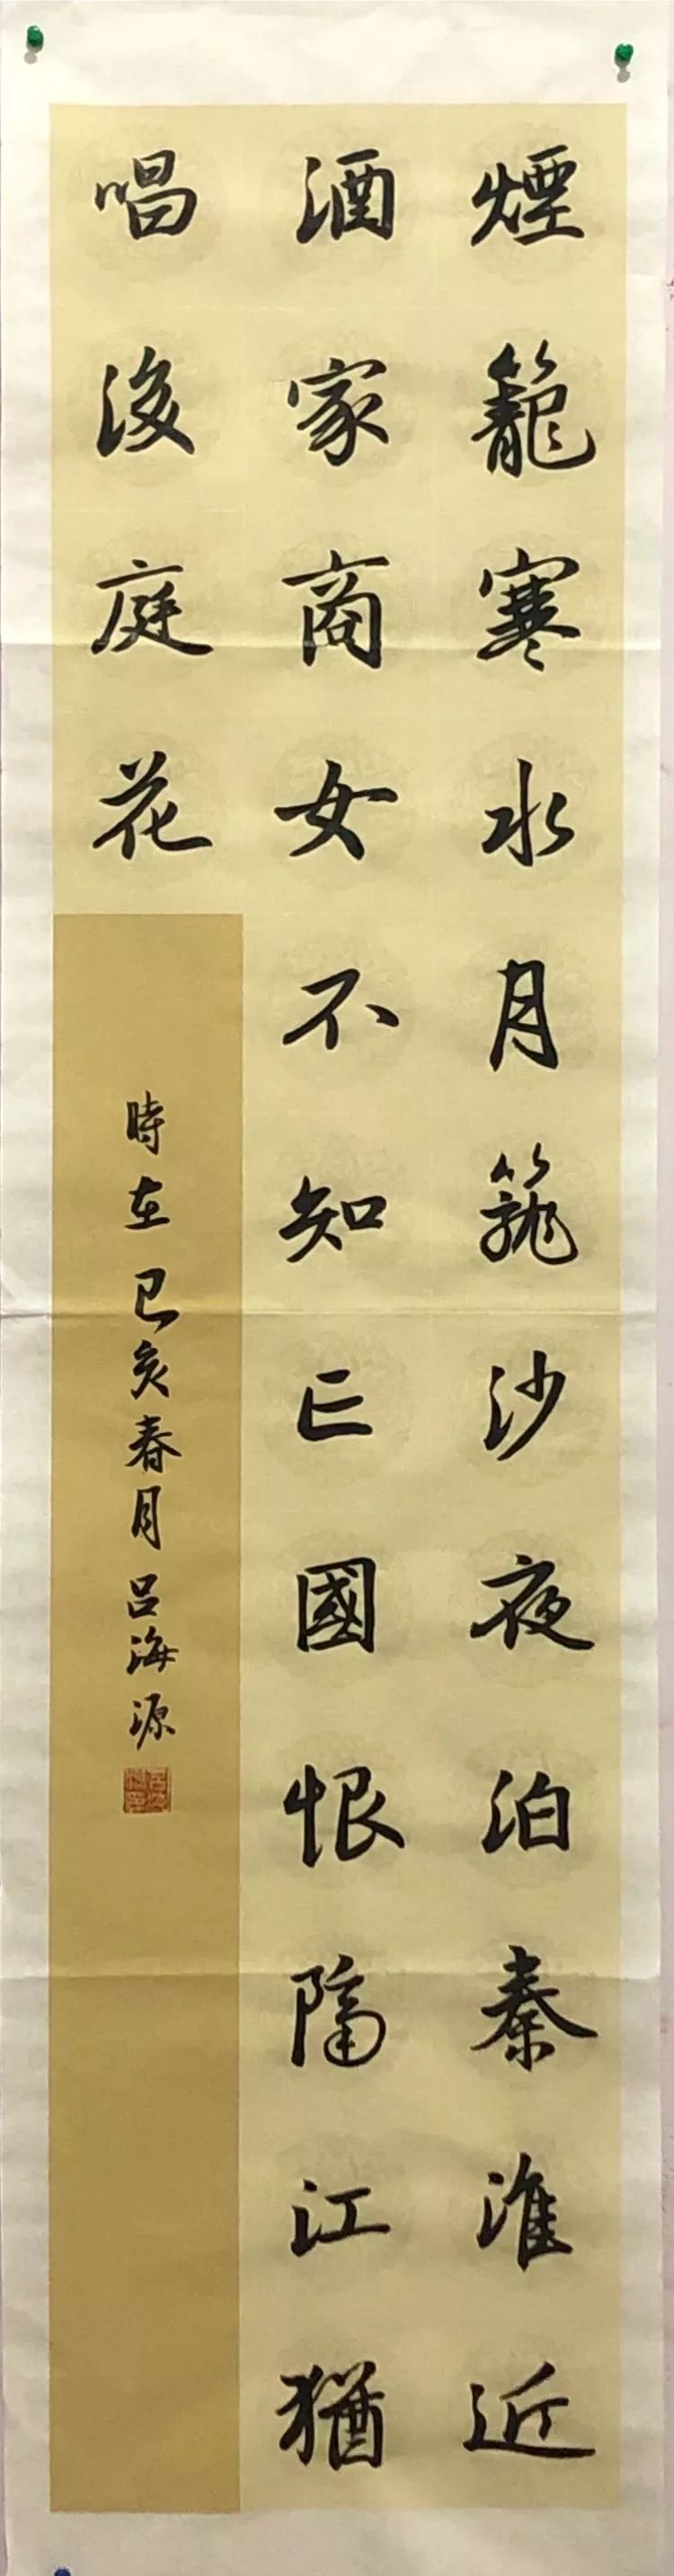 煙籠寒水月籠沙夜泊秦淮近
酒家商女不知亡國恨隔江猶
唱後庭花
時在己亥春月吕海源